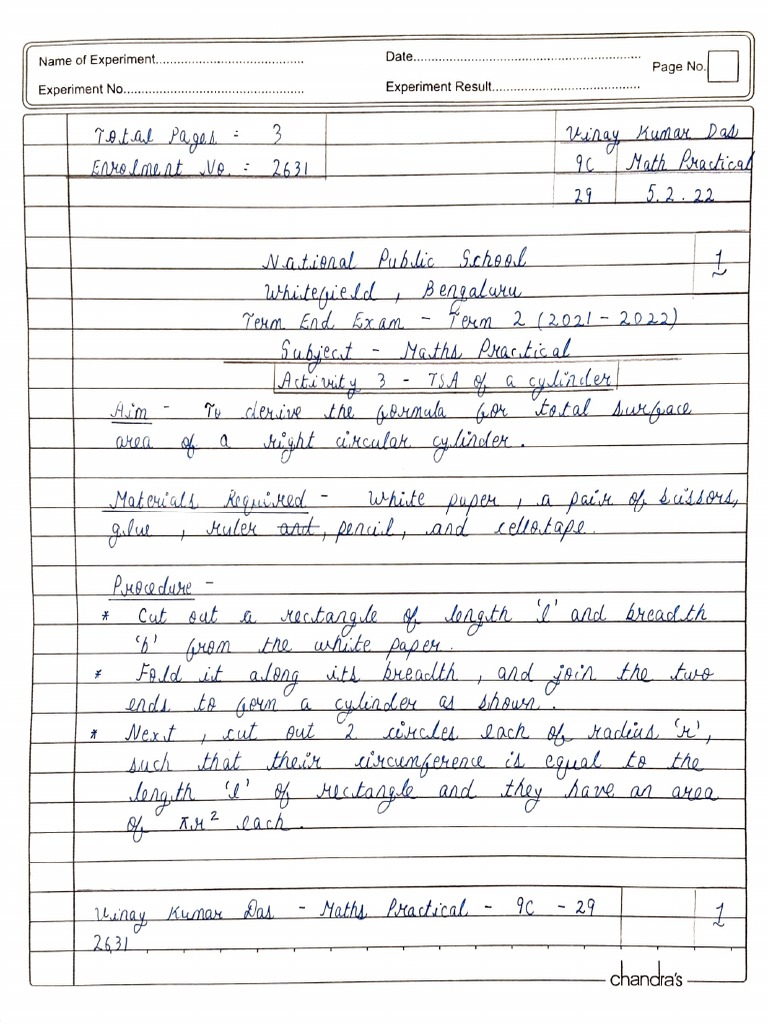 Name of Experiment........................................ Date............................................................ Page No.
Experiment No.................................................. Experiment Result.........................................
Total Pages = 3 Vinay Kumar Das
Enrolment No. : 2631 9C Math Practical
29 5.2.22
National Public School 1
Whitefield, Bengaluru
Term End Exam - Term 2 (2021-2022)
Subject - Maths Practical
Activity 3 - TSA of a cylinder
Aim - To derive the formula for total surface
area of a right circular cylinder.
Materials Required - White paper, a pair of scissors,
glue, ruler and, pencil, and cellotape.
Procedure -
* Cut out a rectangle of length 'l' and breadth
'b' from the white paper.
* Fold it along its breadth, and join the two
ends to form a cylinder as shown.
* Next, cut out 2 circles each of radius 'r',
such that their circumference is equal to the
length 'l' of rectangle and they have an area
of πr² each.
Vinay Kumar Das - Maths Practical - 9C - 29 1
2631
chandra's